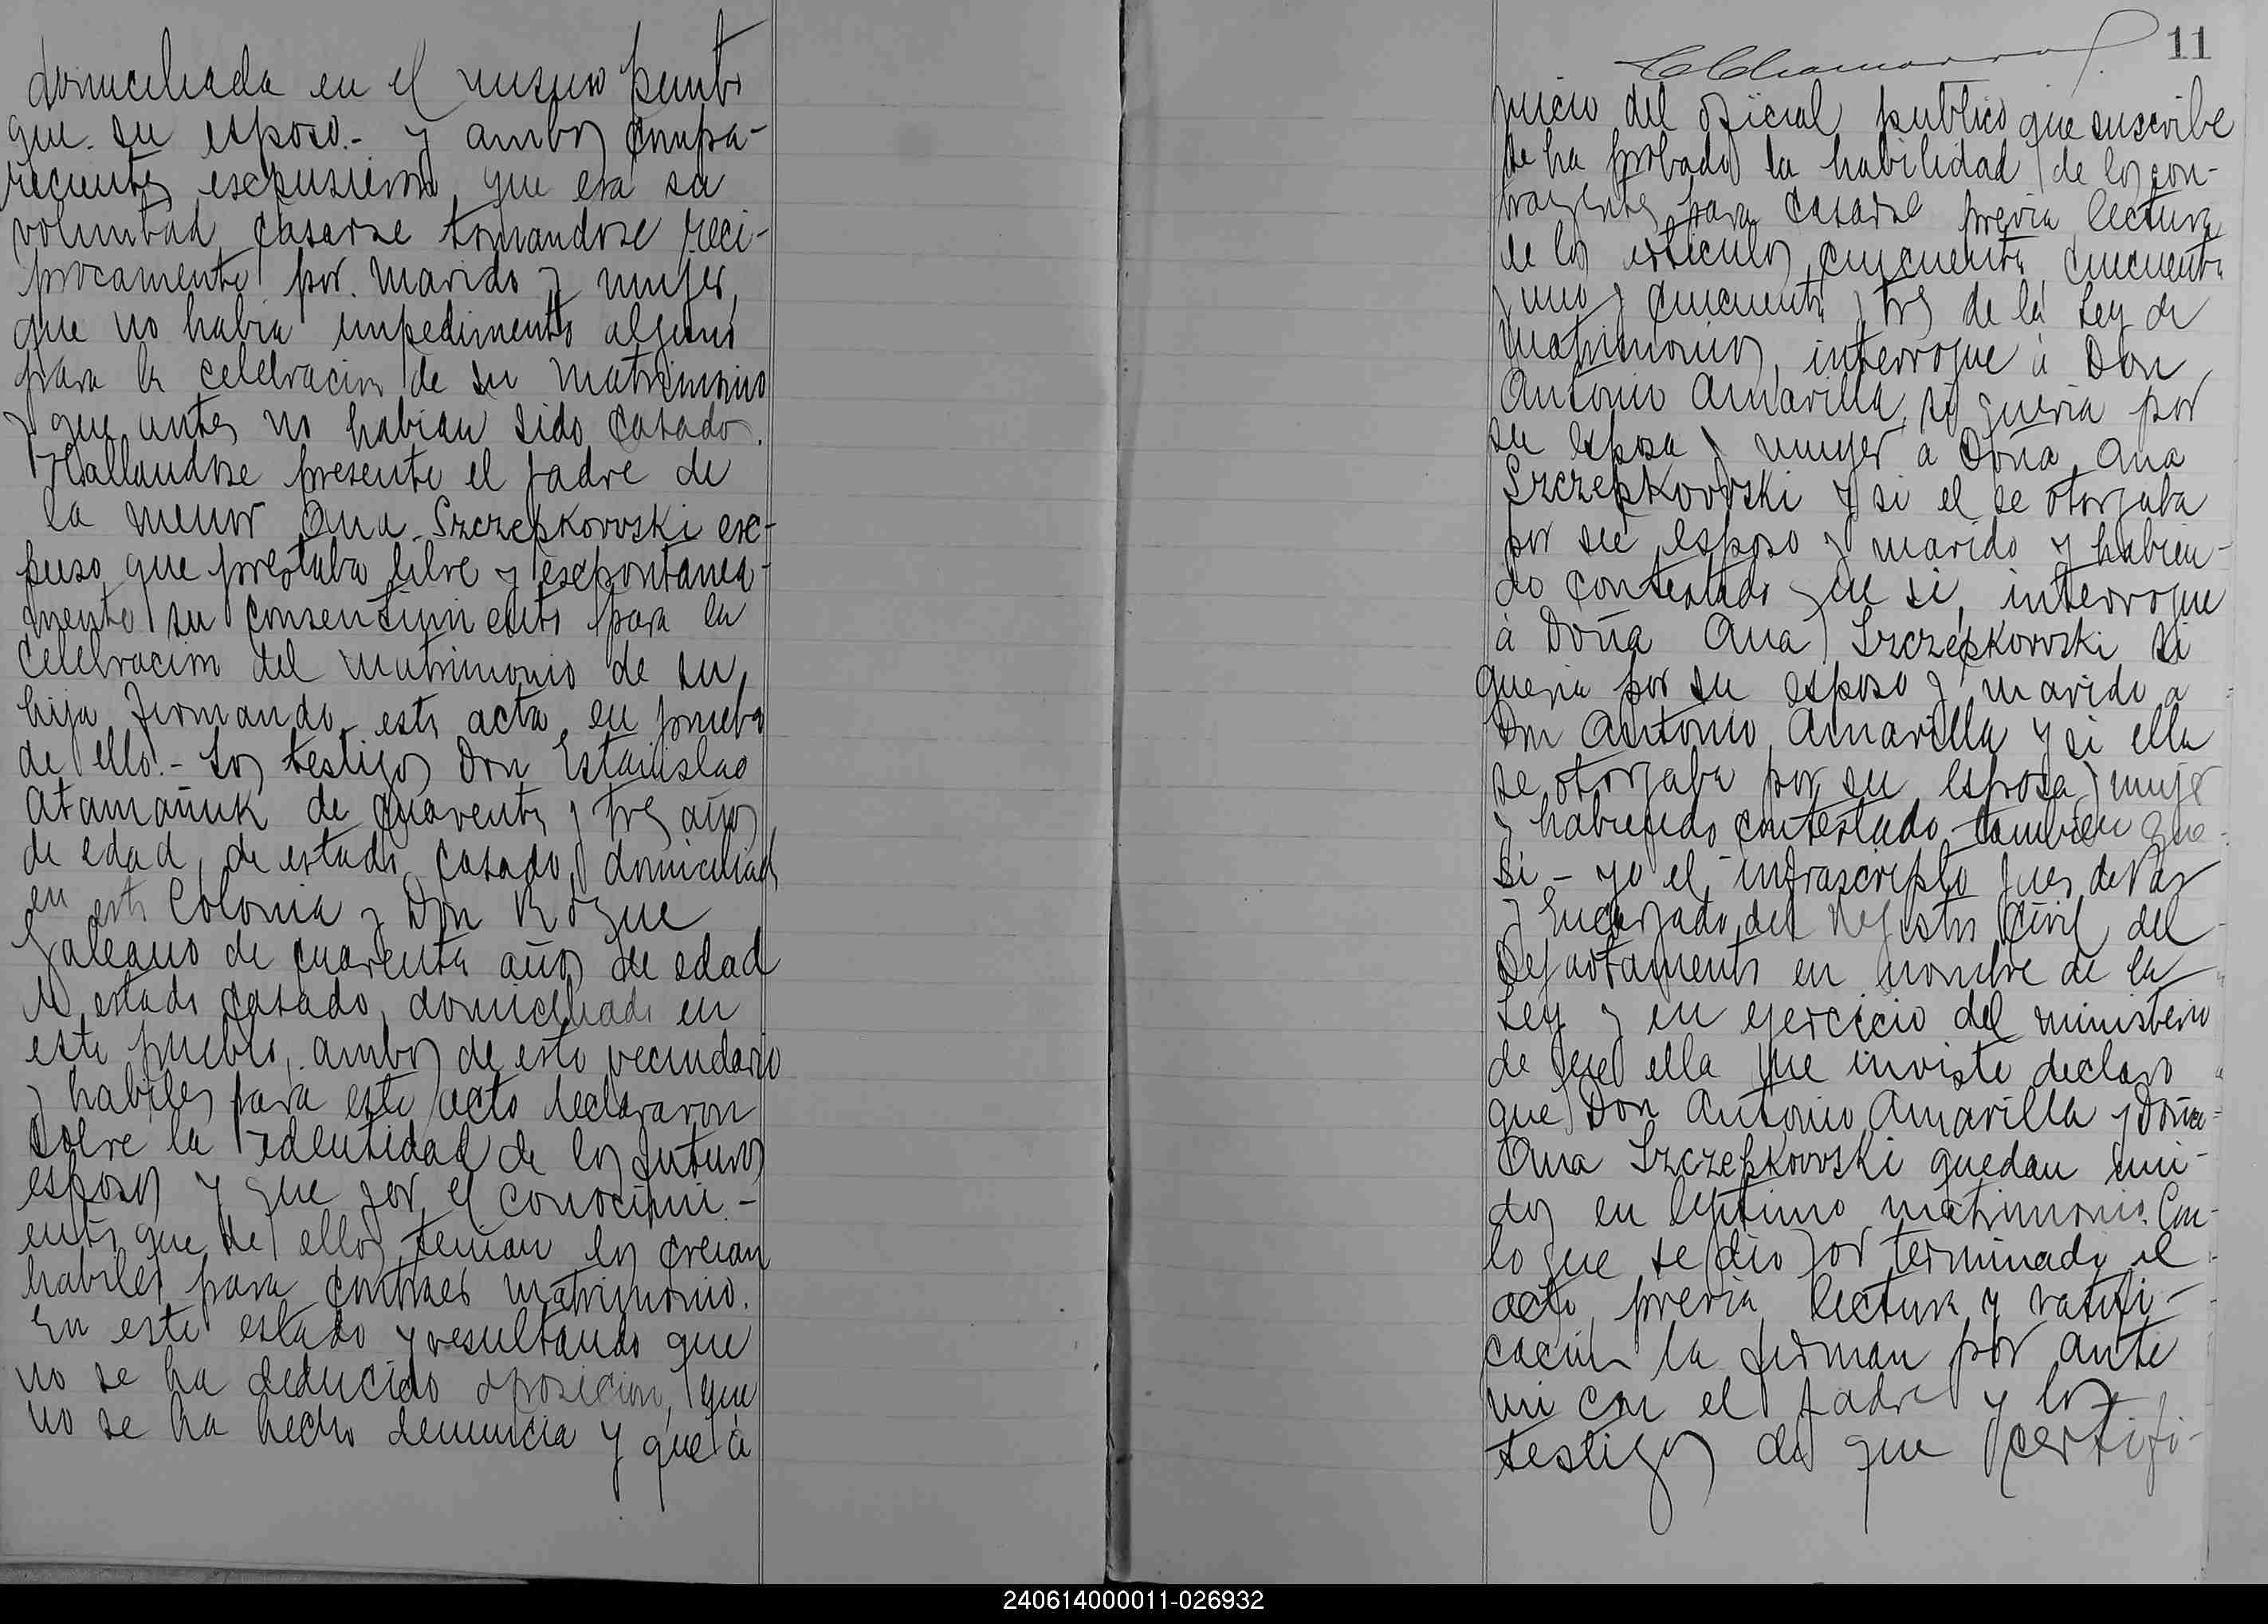 domiciliada en el mismo punto
que su esposo.- y ambos compa-
recientes escpusieron que era su
voluntad casarse tomandose reci-
procamente por marido y mujer,
que no habia impedimento alguno
para la celebracion de su matrimonio
y que antes no habian sido casados.
Hallandose presente el padre de
la menor Ana Szczepkovvski esc-
puso que prestaba libre y escpontanea-
mente su consentimiento para la
celebracion del matrimonio de su
hija firmando este acta en prueba
de ello.- Los testigos Don Estanislao
Atamañuk de cuarenta y tres años
de edad, de estado casado, domiciliado
en esta Colonia y Don Roque
Galeano de cuarenta años de edad
de estado casado, domiciliado en
este pueblo, ambos de este vecindario
y habiles para este acto declararon
sobre la identidad de los futuros
esposos y que por el conocimi-
ento que de ellos tenian los creian
habiles para contraer matrimonio.
En este estado y resultando que
no se ha deducido oposicion, que
no se ha hecho denuncia y que à
11
juicio del oficial publico que suscribe
se ha probado la habilidad de los con-
trayentes para casarse previa lectura
de los articulos cincuenta, cincuenta
y uno y cincuenta y tres de la Ley de
Matrimonios, interrogue à Don
Antonio Amarilla, si queria por
su esposa y muger à Doña Ana
Szczepkovvski y si el se otorgaba
por su esposo y marido y habien-
do contestado que si, interrogue
à Doña Ana Szczepkovvski si
queria por su esposo y marido a
Don Antonio Amarilla y si ella
se otorgaba por su esposa y mujer
y habiendo contestado tambien que
si - yo el infrascripto Juez de Paz
y Encargado del Registro Civil del
Departamento en nombre de la
Ley y en ejercicio del ministerio
de que ella me inviste declaro
que Don Antonio Amarilla y Doña
Ana Szczepkovvski quedan uni-
dos en legitimo matrimonio. Con
lo que se dio por terminado el
acto previa lectura y ratifi-
cacion la firman por ante
mi con el padre y los
testigos de que certifi-
240614000011-026932